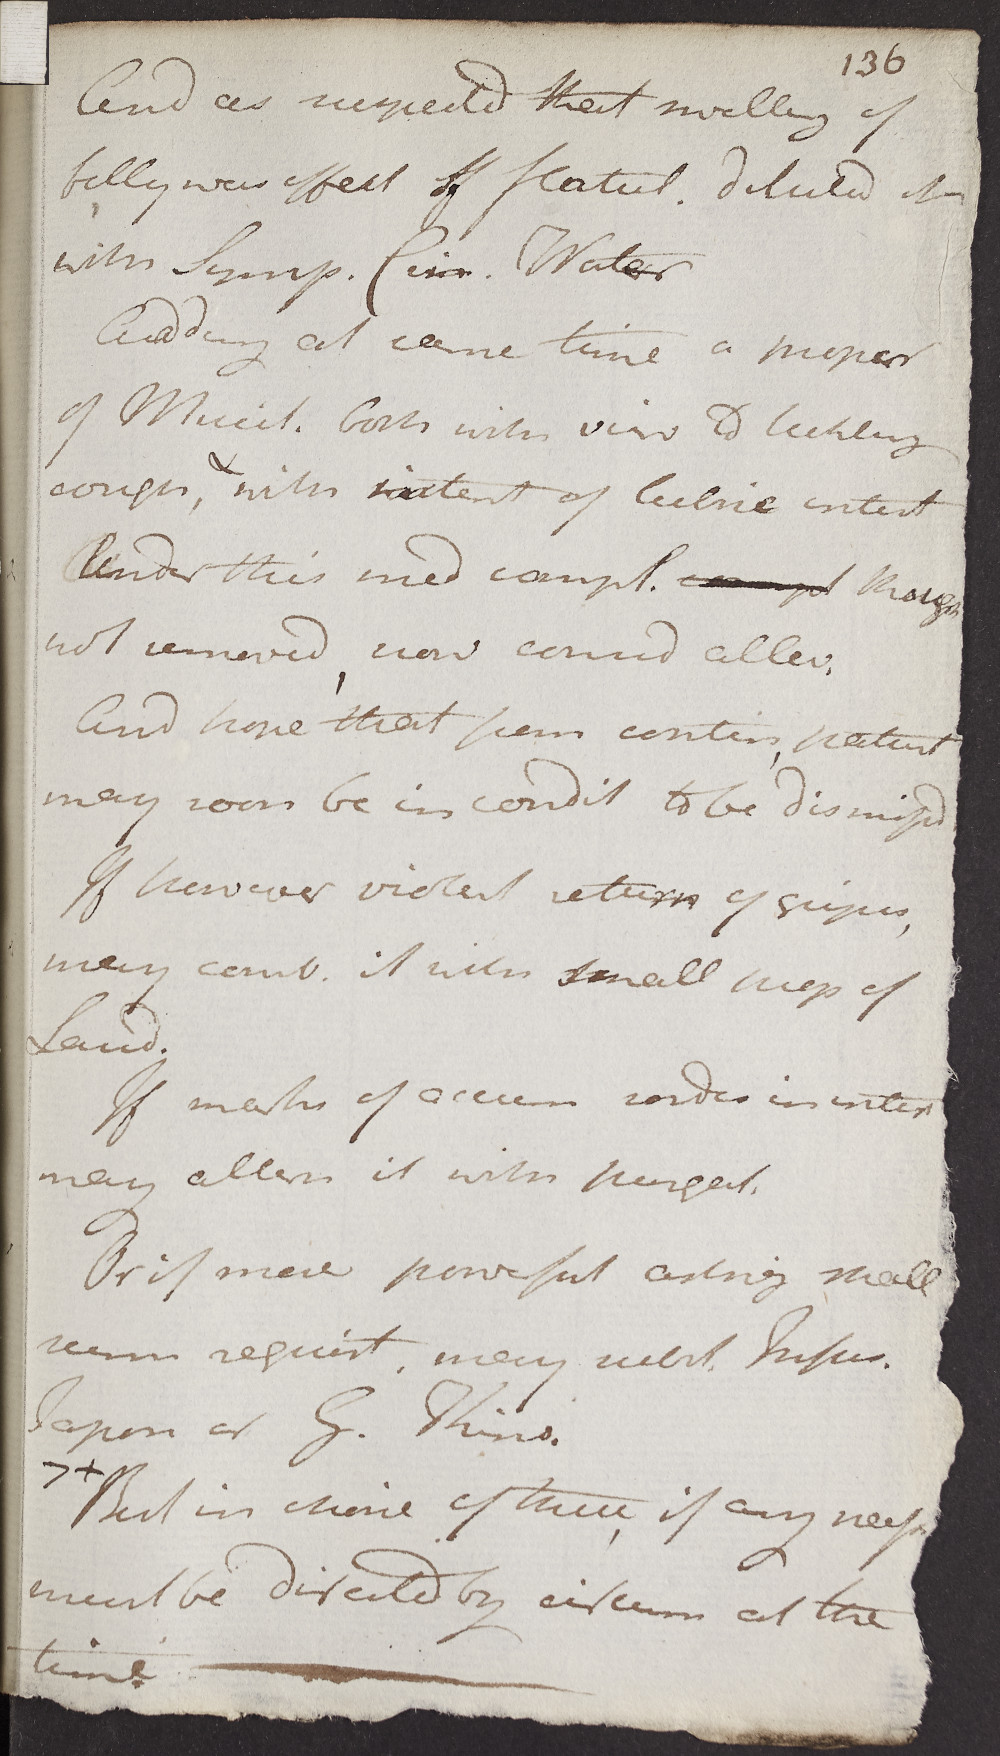 136
And as suspected that swelling of
belly was effect of flatul. diluted it
with Symp. Cin. Water
Adding at same time a proper
of Mucil. both with view to tickling
cough, & with intent of lubric intest
Under this med compl. compl though
not removed, now consid allev.
And hope that from contin, patient
may soon be in condit to be dismissd.
If however violent return of gripes,
may comb. it with small prop of
Laud.
If marks of accum sordes in intest
may altern it with purgat.
Or if more powerful astring shall
seem requisit, may subst. Infus.
Japon or G. Kino.
But in choice of these, if any necess
must be directed by circum at the
time